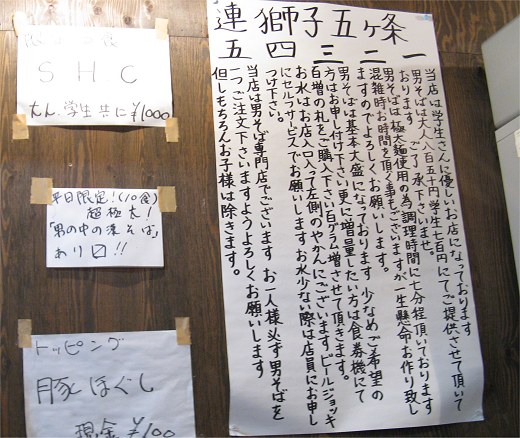 連獅子五ヶ条
一 二 三 四 五
当店は学生さんに優しいお店になっております
男そばは大人八百五十円 学生七百円にてご提供させて頂いて
おります。ご了承下さいませ。
男そばは極太麺使用の為調理時間に七分程頂いております
混雑時お時間を頂く事もございますが一生懸命お作り致し
ますのでよろしくお願いします。
男そばは基本大盛になっております 少なめご希望の
方はお申し付け下さい更に増量したい方は食券機にて
百増の札をご購入下さい百グラム増させて頂きます。
お水はお店入口入って左側のやかんにございますビールジョッキ
にセルフサービスでお願いします お水少ない際は店員にお申し
つけ下さい。
当店は男そば専門店でございます お一人様必ず男そばを
一つご注文下さいますようよろしくお願いします
但しもちろんお子様は除きます。
SHC
大人、学生共に¥1000
平日限定!(10食)
超極太!
「男の中の漢そば」
あり〼!!
トッピング
豚ほぐし
現金¥100